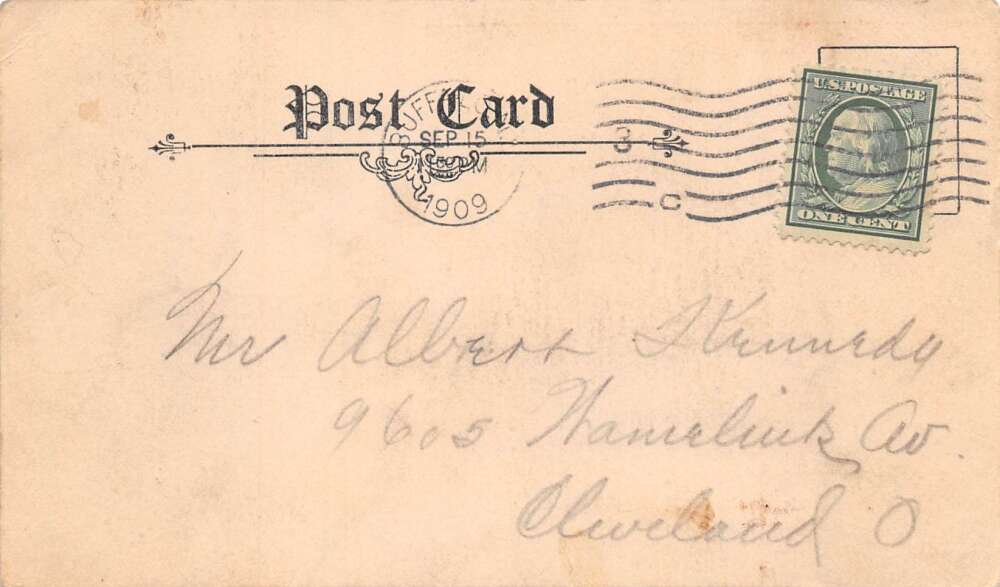 Post Card
BUFFALO
SEP 15
PM
1909
3
C
U.S. POSTAGE
ONE CENT
Mr Albert Kennedy
9605 Hamelink Av.
Cleveland O